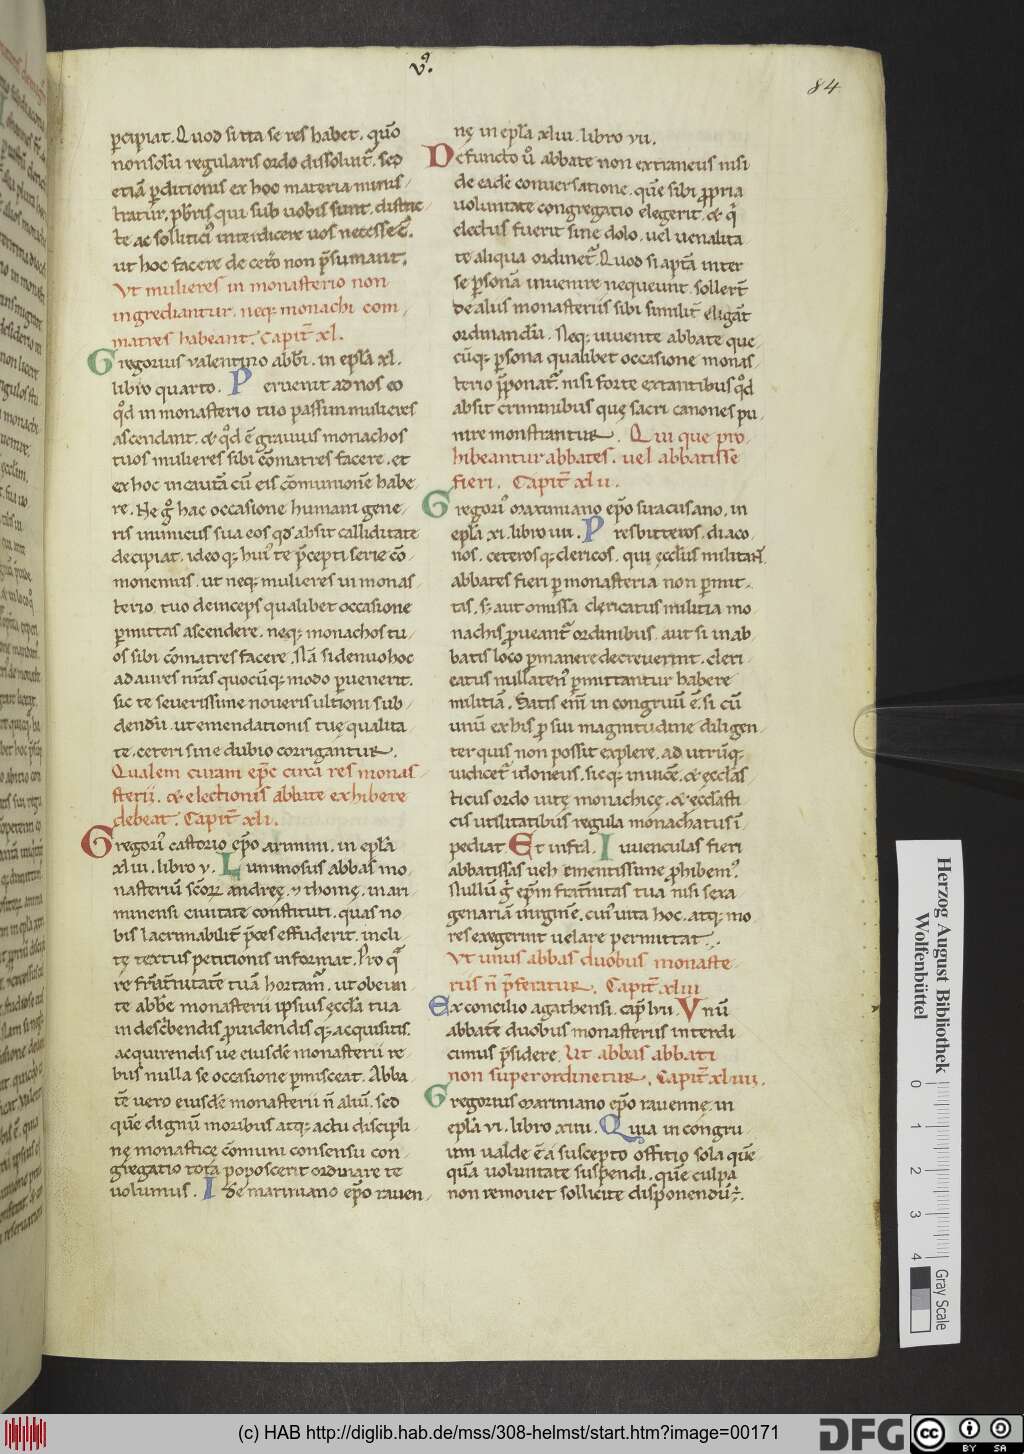 v͛.
84
p̱cipiat. Quod si ita se res habet. quō
non solū regularis ordo dissoluit᷑. sed
etiā p̱ditionis ex hoc materia minis/
tratur. pbr̄is qui sub uobis sunt. distric/
te ac sollicit᷒ interdicere uos necesse ē.
ut hoc facere de cet᷑o non p̄sumant.
Vt mulieres in monasterio non
ingrediantur. neq; monachi com/
matres habeant. Capit᷑ xl.
Gregorius valentino abb̄i. in epl̄a xl.
libro quarto. Peruenit ad nos eo
qd̄ in monasterio tuo passim mulieres
ascendant. & qd̄ ē grauius monachos
tuos mulieres sibi cōmatres facere. et
ex hoc incautā cū eis cōmunionē habe/
re. Ne g̊ hac occasione humani gene/
ris inimicus sua eos qd̄ absit calliditate
decipiat. ideoq; hui᷒ te p̄cepti serie cō/
monemus. ut neq; mulieres in monas/
terio tuo deinceps qualibet occasione
p̱mittas ascendere. neq; monachos tu/
os sibi cōmatres facere. Nā si denuo hoc
ad aures nr̄as quocūq; modo p̱uenerit.
sic te seuerissime noueris ultioni sub/
dendū. ut emendationis tuę qualita/
te. ceteri sine dubio corrigantur.
Qualem curam ep̄c circa res monas/
sterii. & electionis abbate exhibere
debeat. Capit᷑ xli.
Gregori᷒ castorio ep̄o arimini. in epl̄a
xliii. libro v. Luminosus abbas mo/
nasteriū scōꝝ andreę. ⁊ thomę. in ari/
minensi ciuitate constituti. quas no/
bis lacrimabilit᷑ p̄ces effuderit. incli/
tę textus petitionis informat. Pro q̄
re frat᷑nitate tuā hortam᷑. ut obeun/
te abb̄e monasterii ipsius ęccl̄a tua
in describendis p̱uidendisq; acquisitis
acquirendisue eiusdē monasterii re/
bus nulla se occasione p̱misceat. Abba/
tē uero eiusdē monasterii n̄ aliū. sed
quē dignū moribus atq; actu discipli/
nę monasticę cōmuni consensu con/
gregatio tota poposcerit ordinare te
uolumus. Idē mariniano ep̄o rauen/
nę in epl̄a xliii. libro vii.
Defuncto ū abbate non extraneus nisi
de eadē conuersatione. quē sibi p̱pria
uoluntate congregatio elegerit. & q̄
electus fuerit sine dolo. uel uenalita
te aliqua ordinet᷑. Quod si aptā inter
se p̱sonā inuenire nequeunt. sollert᷑
de aliis monasteriis sibi similit᷑ eligāt
ordinandū. Neq; uiuente abbate que/
cūq; p̱sona qualibet occasione monas/
terio p̱ponat᷑. nisi forte extantibus qd̄
absit criminibus quę sacri canones pu/
nire monstrantur. Qui que pro/
hibeantur abbates. uel abbatisse
fieri. Capit᷑ xlii.
Gregori᷒ maximiano ep̄o siracusano. in
epl̄a xi. libro iiii. Presbitteros. diaco/
nos. ceterosq; clericos. qui ęcclīis militant.
abbates fieri p̱ monasteria non p̱mit/
tas. s; aut omissa clericatus militia mo/
nachis p̱ueant᷑ ordinibus. aut si in ab/
batis loco p̱manere decreuerint. cleri/
catus nullaten᷒ p̱mittantur habere
militiā. Satis em̄ in congruū ē. si cū
unū ex his p̱ sui magnitudine diligen/
ter quis non possit explere. ad utrūq;
iudicet᷑ idoneus. sicq; inuicē. & ęcclias/
ticus ordo uitę monachicę. & ęcclasti/
cis utilitatibus regula monachatus ī/
pediat. Et infra. Iuuenculas fieri
abbatissas uehementissime p̱hibem᷒.
Nullū g̊ ep̄m frat᷑nitas tua nisi sexa/
genariā uirginē. cui᷒ uita hoc. atq; mo/
res exegerint uelare permittat.
Vt unus abbas duobus monaste/
riis n̄ p̄feratur. Capit᷑ xliii
Ex concilio agathensi. cap̄ lvii. Vnū
abbatē duobus monasteriis interdi/
cimus p̄sidere. Ut abbas abbati
non superordinetur. Capit᷑ xliiii.
Gregorius mariniano ep̄o rauennę. in
epl̄a vi. libro xiiii. Quia incongru/
um ualde ē a suscepto offitio sola quē/
quā uoluntate suspendi. quē culpa
non remouet sollicite disponendū;.
Herzog August Bibliothek
Wolfenbüttel
0 1 2 3 4
Gray Scale
(c) HAB http://diglib.hab.de/mss/308-helmst/start.htm?image=00171
DFG
cc
BY SA